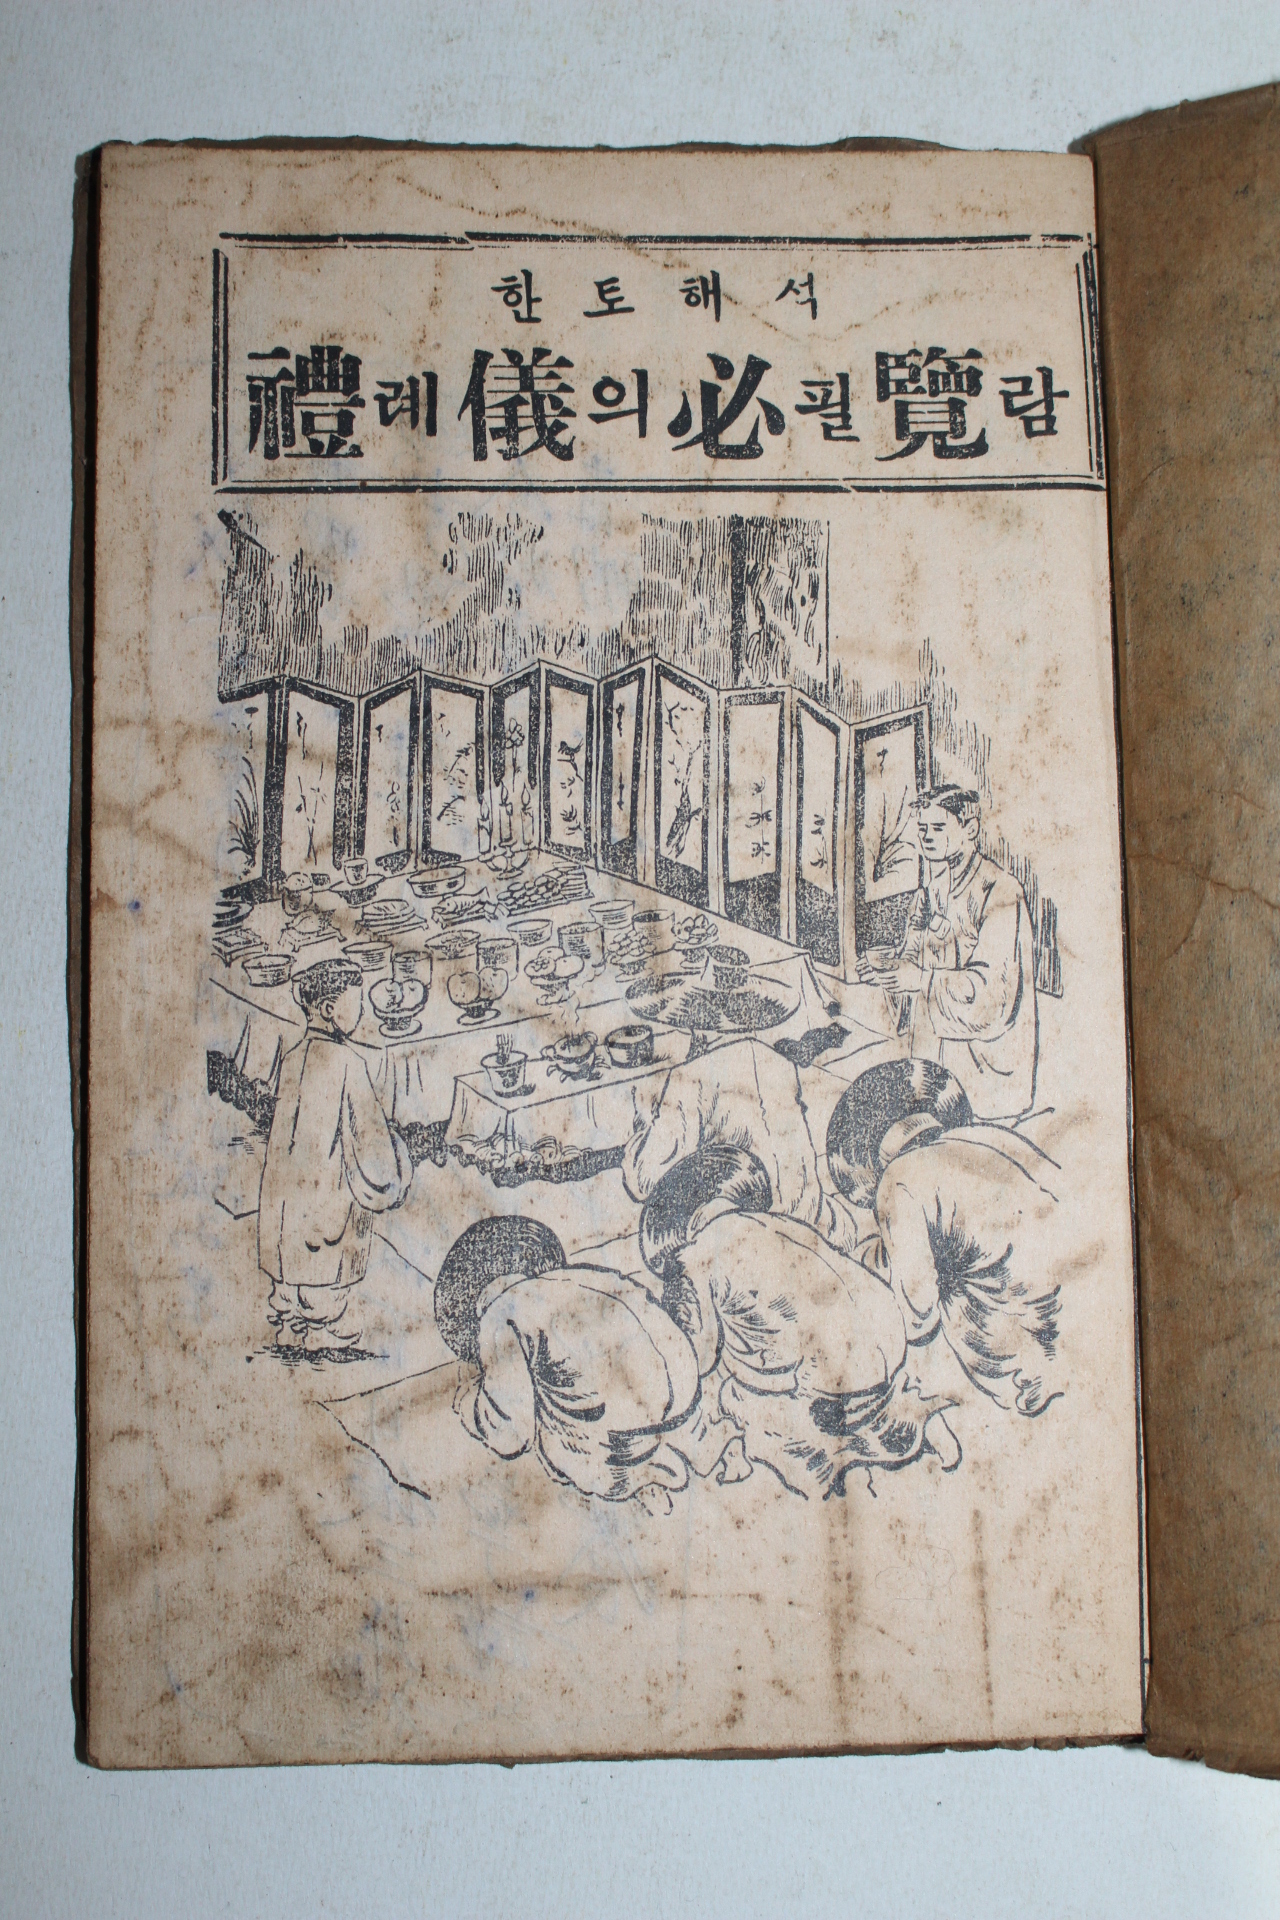 한토해석
禮례儀의必필覽람